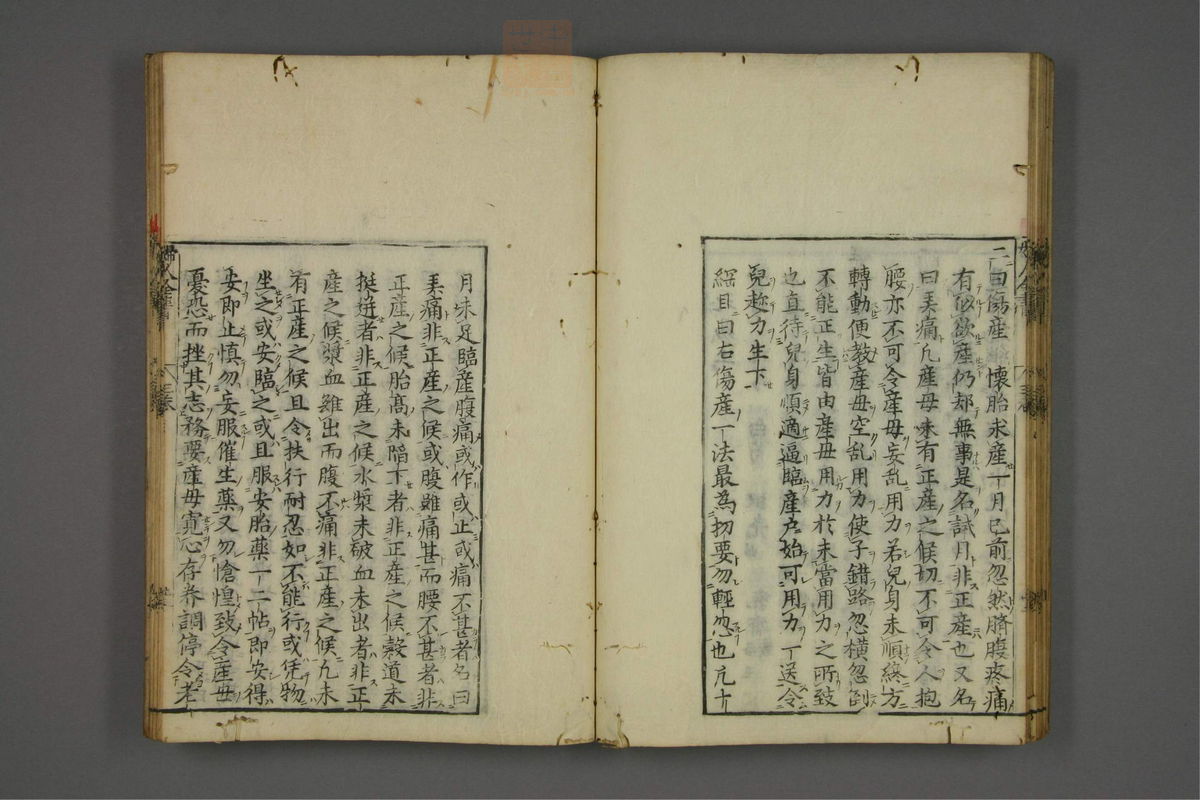 二曰傷産 懷胎未産一月已前忽然臍腹疼痛
有似欲産仍却無事是名試月非正産也又名
曰弄痛凡産母未有正産之候切不可令人抱
腰亦不可令産母妄乱用力若兒身未順縱方
轉動便教産母空乱用力使子錯路忽横忽倒
不能正生皆由産母用力於未當用力之所致
也直待兒身順適逼臨産户始可用力一送令
兒趂力生下
綱目曰右傷産一法最為切要勿輕忽也凢十
月未足臨産腹痛或作或止或痛不甚者名曰
弄痛非正産之候或腹雖痛甚而腰不甚者非
正産之候胎髙未陷下者非正産之候穀道未
挺迸者非正産之候水漿未破血未出者非正
産之候漿血雖出而腹不痛非正産之候凢未
有正産之候且令扶行耐忍如不能行或凭物
坐之或安臨之或且服安胎藥一二帖即安得
安即止慎勿妄服催生藥又勿愴惶致令産母
憂恐而挫其志務要産母寛心存養調停令老